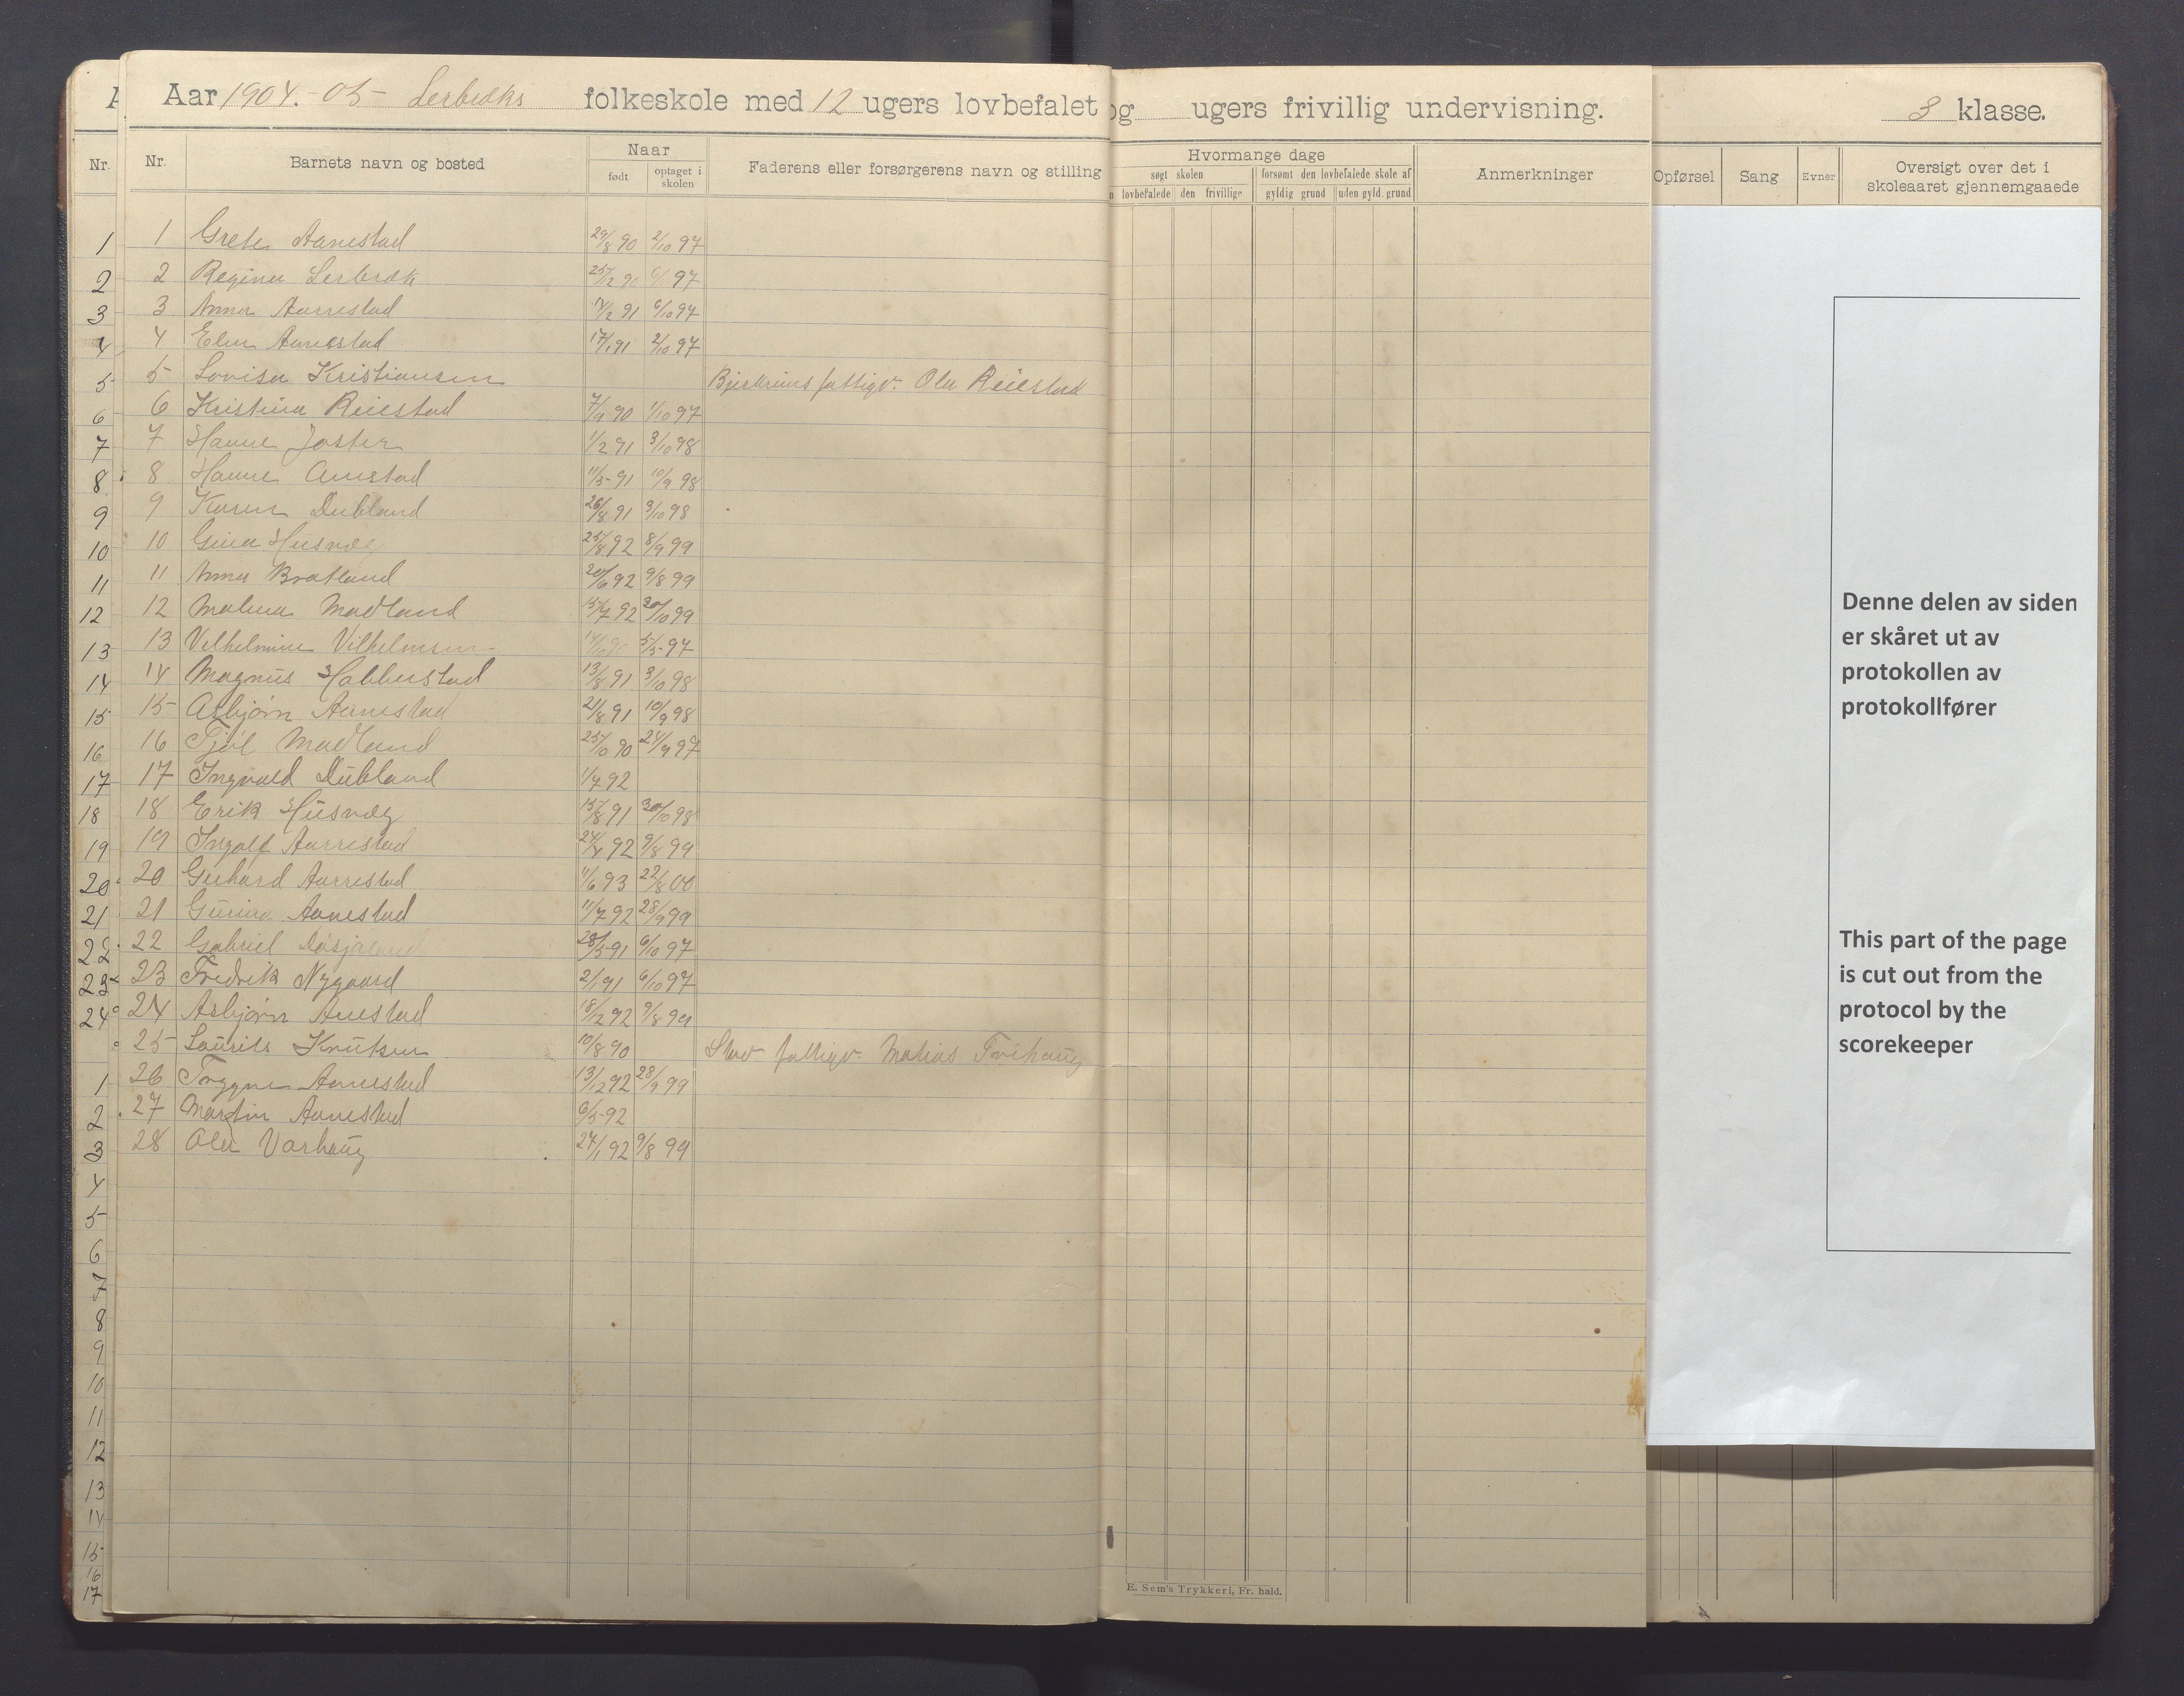 Aar 1904.-05- Lerbræks folkeskole med 12 ugers lovbefalet og ugers frivillig undervisning. 3 klasse.
Nr. Nr. Barnets navn og bosted Naar født optaget i skolen Faderens eller forsørgerens navn og stilling Hvormange dage søgt skolen lovbefalede den frivillige forsømt den lovbefalede skole af gyldig grund uden gyld. grund Anmerkninger Opførsel Sang Evner Oversigt over det i skoleaaret gjennemgaaede
1 1 Grete Aanestad 29/8 90 2/10 97
2 2 Regina Lerbræk 25/12 90 97
3 3 Anna Aarrestad 91 6/10 97
4 4 Elen Aanestad 17/1 91 2/10 97
5 5 Lovisa Kristiansen Bjerkreims fattigv. Ola Reiestad
6 6 Kristina Reiestad 7/9 90 1/10 97
7 7 Hanne Joster 1/2 91 3/10 98
8 8 Hanne Anestad 11/5 91 10/9 98
9 9 Karen Dubland 26/8 91 3/10 98
10 10 Gina Husvæg 25/8 92 8/9 99
11 11 Anna Bratland 20/6 92 9/8 99
12 12 Malena Madland 15/7 92 30/10 99
13 13 Vilhelmine Vilhelmsen 5/5 97
14 14 Magnus Habberstad 13/8 91 3/10 98
15 15 Asbjørn Aanestad 21/8 91 10/9 98
16 16 Tjøl Madland 25/10 90 24/9 97
17 17 Ingvald Dubland 1/7 92
18 18 Erik Husvæg 15/8 91 30/10 98
19 19 Ingolf Aarrestad 24/4 92 9/8 99
20 20 Gerhard Aarrestad 11/6 93 22/8 00
21 21 Gurina Aanestad 11/7 92 28/9 99
22 22 Gabriel 28/5 91 6/10 97
23 23 Fredrik Nygaard 2/1 91 6/10 97
24 24 Asbjørn Anestad 18/12 92 9/8 99
25 Laurits Knutsen 10/8 90 Stav. fattigv. Matias Tvihaug
1 26 Tryggve Aanestad 13/12 92 28/9 99
2 27 Martin Aanestad 6/5 92
3 28 Ola Varhaug 27/1 92 9/8 99
4
5
6
7
8
9
10
11
12
13
14
15
16
17
E. Sem's Trykkeri, Fr. hald.
Denne delen av siden
er skåret ut av
protokollen av
protokollfører
This part of the page
is cut out from the
protocol by the
scorekeeper